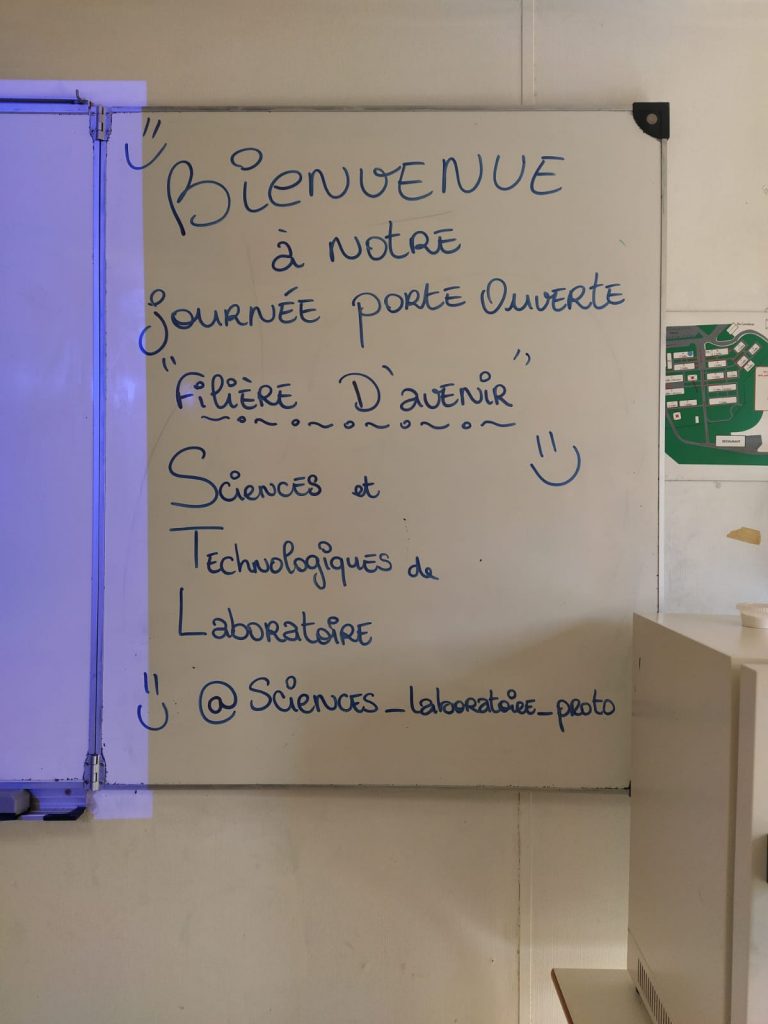 BIENVENUE
à NOTRE
jOURNÉE PORTE OUVERTE
"FILIÈRE D'AVENIR"
SCIENCES et
TECHNOLOGIQUES de
LABORATOIRE
@SCIENCES_LABORATOIRE_PROTO